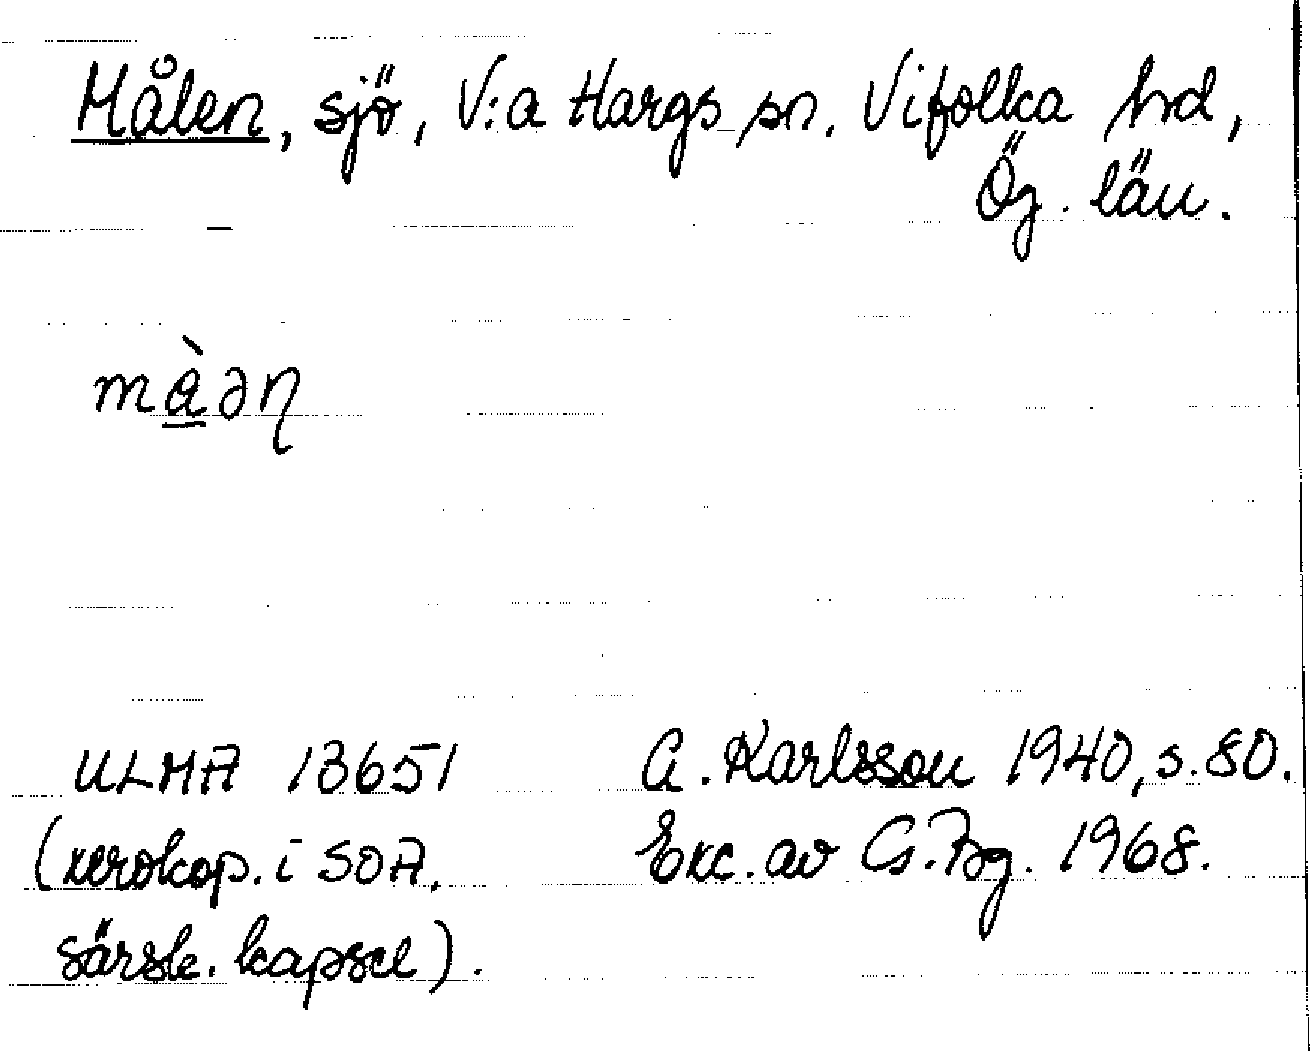 Målen, sjö, V:a Hargs sn. Vifolka hd,
Ög. län.
må̀əη
ULMA 13651
A. Karlsson 1940, s. 80.
(xerokop. i SOA,
Exc. av G. Bg. 1968.
särsk. kapsel).